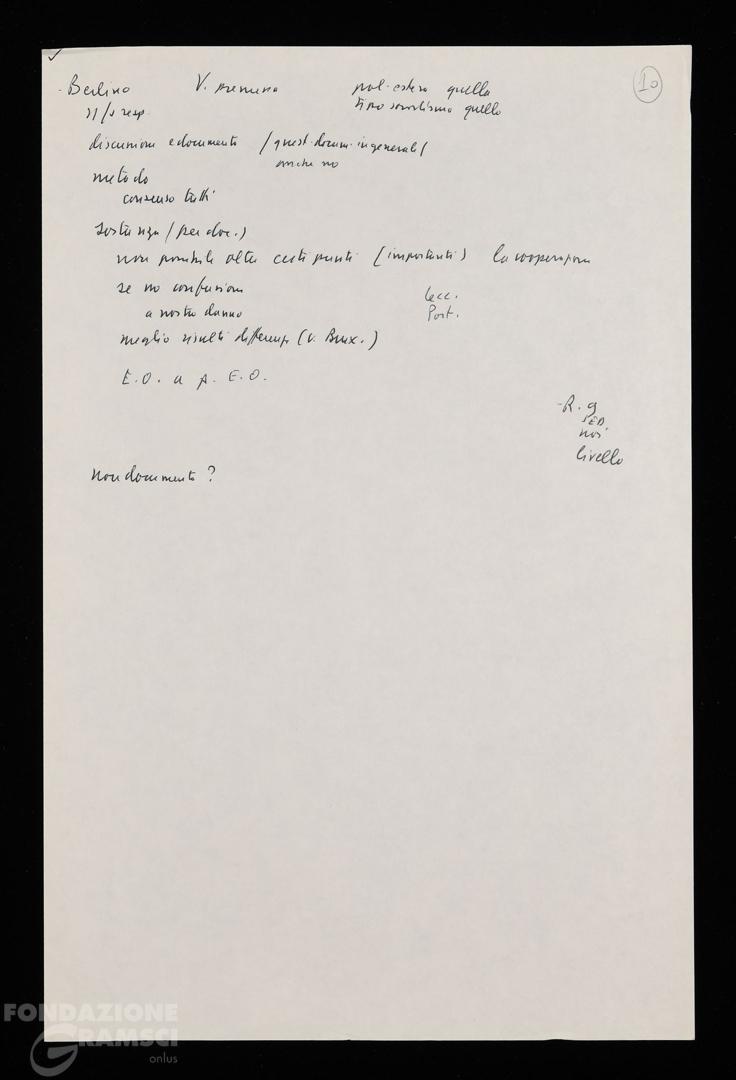 10
- Berlino V. premessa pol. estera quella
tipo socialismo quello
sì / resp.
discussione e documento / quest. docum. in generale /
anche no
metodo
consenso tutti
sostanza / per doc.)
non possibile oltre certi punti (importanti) la cooperazione
se no confusione
a nostro danno
Cecc.
Port.
meglio risulti differenze (v. Brux.)
E.O. a p. E.O.
- R. g
SED.
noi
livello
non documento ?
FONDAZIONE
GRAMSCI
onlus